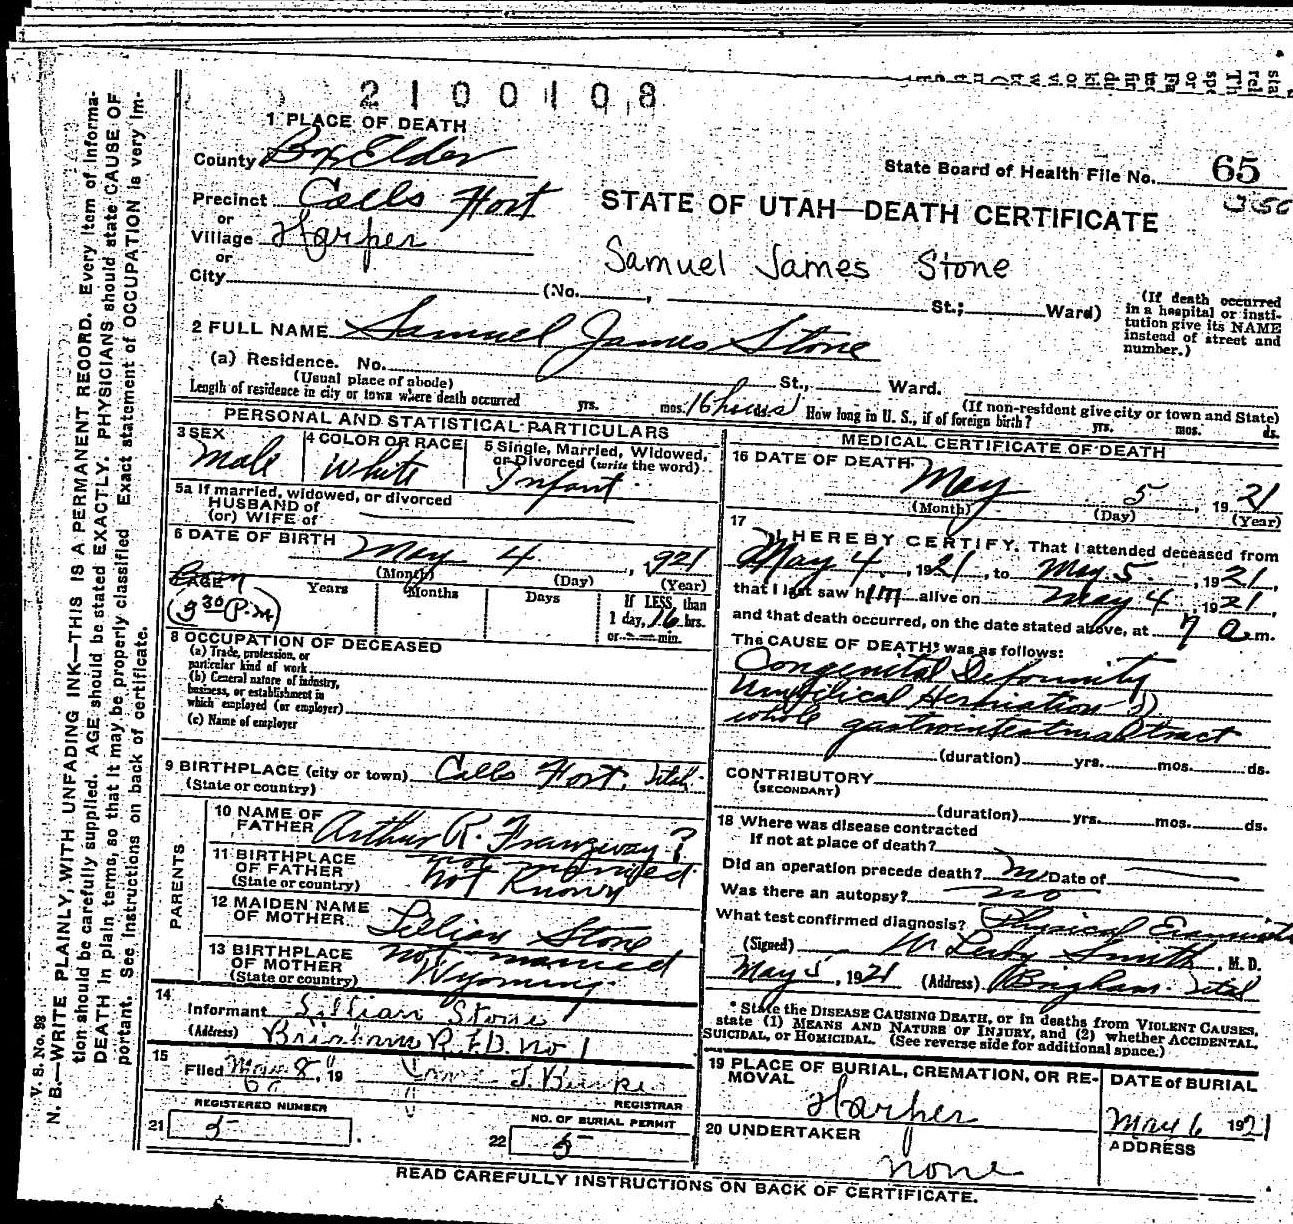 2100108
1 PLACE OF DEATH
County Box Elder
State Board of Health File No. 65
Precinct Calls Fort
or
Village Harper
or
City
STATE OF UTAH—DEATH CERTIFICATE
Samuel James Stone
(No. , St.; Ward)
(If death occurred
in a hospital or insti-
tution give its NAME
instead of street and
number.)
2 FULL NAME Samuel James Stone
(a) Residence. No. St., Ward.
(Usual place of abode) (If non-resident give city or town and State)
Length of residence in city or town where death occurred yrs. mos. 16 hours How long in U. S., if of foreign birth? yrs. mos. ds.
PERSONAL AND STATISTICAL PARTICULARS
3 SEX
Male
4 COLOR OR RACE
White
5 Single, Married, Widowed,
or Divorced (write the word)
Infant
5a If married, widowed, or divorced
HUSBAND of
(or) WIFE of
6 DATE OF BIRTH May 4, 921
(Month) (Day) (Year)
7 AGE
(9 30 P.M)
Years Months Days
If LESS than
1 day, 16 hrs.
or min.
8 OCCUPATION OF DECEASED
(a) Trade, profession, or
particular kind of work
(b) General nature of industry,
business, or establishment in
which employed (or employer)
(c) Name of employer
9 BIRTHPLACE (city or town) Calls Fort, Utah
(State or country)
PARENTS
10 NAME OF
FATHER Arthur R. Franzway ?
not married
11 BIRTHPLACE
OF FATHER
(State or country) Not Known
12 MAIDEN NAME
OF MOTHER Lillian Stone
not married
13 BIRTHPLACE
OF MOTHER
(State or country) Wyoming
14
Informant Lillian Stone
(Address) Brigham R.F.D. No 1
15
Filed May 8, 19
REGISTRAR
REGISTERED NUMBER
21 5
NO. OF BURIAL PERMIT
22 5
MEDICAL CERTIFICATE OF DEATH
16 DATE OF DEATH May 5, 1921
(Month) (Day) (Year)
17 I HEREBY CERTIFY, That I attended deceased from
May 4, 1921, to May 5, 1921,
that I last saw him alive on May 4, 1921,
and that death occurred, on the date stated above, at 7 a m.
The CAUSE OF DEATH* was as follows:
Congenital Deformity
Umbilical Herniation
whole gastrointestinal tract
(duration) yrs. mos. ds.
CONTRIBUTORY
(SECONDARY)
(duration) yrs. mos. ds.
18 Where was disease contracted
If not at place of death?
Did an operation precede death? no Date of
Was there an autopsy? no
What test confirmed diagnosis? Physical Examination
(Signed) Smith, M. D.
May 5, 1921 (Address) Brigham Utah
* State the DISEASE CAUSING DEATH, or in deaths from VIOLENT CAUSES,
state (1) MEANS AND NATURE OF INJURY, and (2) whether ACCIDENTAL,
SUICIDAL, or HOMICIDAL. (See reverse side for additional space.)
19 PLACE OF BURIAL, CREMATION, OR RE-
MOVAL
Harper
DATE of BURIAL
May 6 1921
20 UNDERTAKER
none
ADDRESS
READ CAREFULLY INSTRUCTIONS ON BACK OF CERTIFICATE.
V. S. No. 98
N. B.—WRITE PLAINLY, WITH UNFADING INK—THIS IS A PERMANENT RECORD. Every item of informa-
tion should be carefully supplied. AGE should be stated EXACTLY. PHYSICIANS should state CAUSE OF
DEATH in plain terms, so that it may be properly classified. Exact statement of OCCUPATION is very im-
portant. See Instructions on back of certificate.